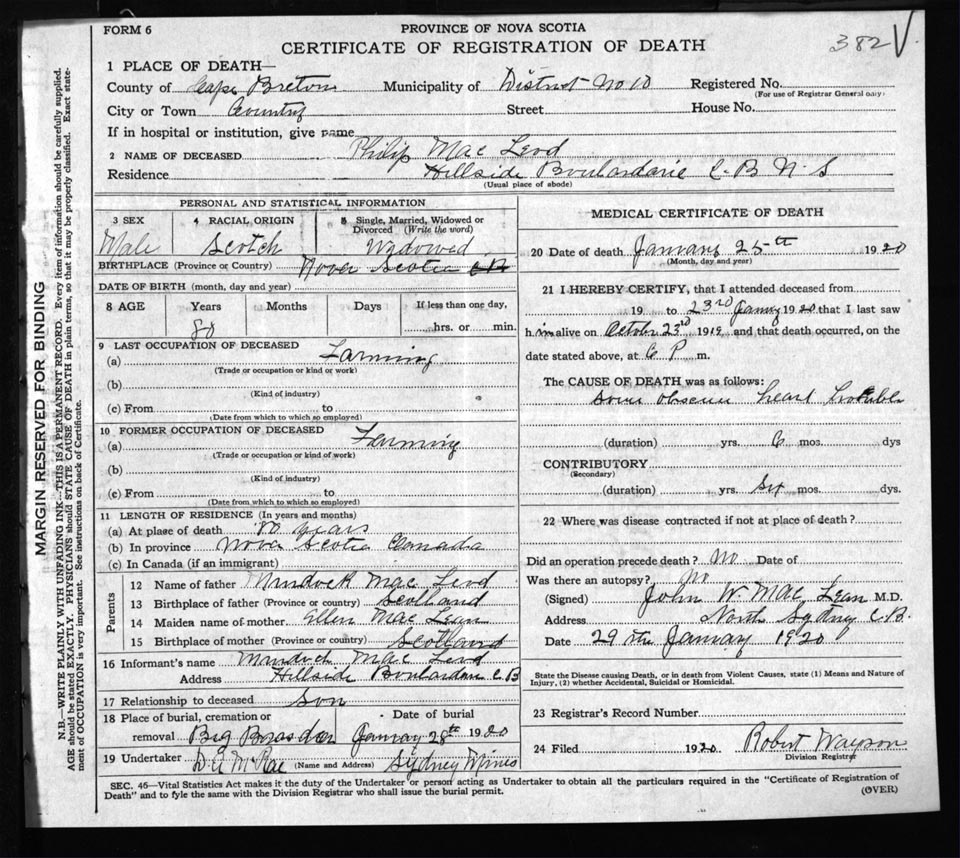 FORM 6
PROVINCE OF NOVA SCOTIA
CERTIFICATE OF REGISTRATION OF DEATH
382 V
1 PLACE OF DEATH—
County of Cape Breton Municipality of District No 10 Registered No.
(For use of Registrar General only)
City or Town Country Street House No.
If in hospital or institution, give name
2 NAME OF DECEASED Philip Mac Leod
Residence Hillside Boulardarie C. B N S
(Usual place of abode)
PERSONAL AND STATISTICAL INFORMATION
3 SEX 4 RACIAL ORIGIN 5 Single, Married, Widowed or Divorced (Write the word)
Male Scotch Widowed
BIRTHPLACE (Province or Country) Nova Scotia
DATE OF BIRTH (month, day and year)
8 AGE Years Months Days If less than one day,
80 hrs. or min.
9 LAST OCCUPATION OF DECEASED
(a) Farming
(Trade or occupation or kind or work)
(b)
(Kind of industry)
(c) From to
(Date from which to which so employed)
10 FORMER OCCUPATION OF DECEASED
(a) Farming
(Trade or occupation or kind of work)
(b)
(Kind of industry)
(c) From to
(Date from which to which so employed)
11 LENGTH OF RESIDENCE (In years and months)
(a) At place of death 80 years
(b) In province Nova Scotia Canada
(c) In Canada (if an immigrant)
Parents
12 Name of father Murdock Mac Leod
13 Birthplace of father (Province or country) Scotland
14 Maiden name of mother Ellen Mac Lean
15 Birthplace of mother (Province or country) Scotland
16 Informant's name Murdock Mac Leod
Address Hillside Boulardarie C. B
17 Relationship to deceased Son
18 Place of burial, cremation or removal Date of burial
Big Brasdor January 28th 1920
19 Undertaker D. A McRae (Name and Address) Sydney Mines
MEDICAL CERTIFICATE OF DEATH
20 Date of death January 25th 1920
(Month, day and year)
21 I HEREBY CERTIFY, that I attended deceased from
19 to 23rd January 1920 that I last saw
h im alive on October 23rd 1919, and that death occurred, on the
date stated above, at 6 P. m.
The CAUSE OF DEATH was as follows:
Some obscure heart trouble
(duration) yrs. 6 mos. dys
CONTRIBUTORY
(Secondary)
(duration) yrs. Six mos. dys.
22 Where was disease contracted if not at place of death?
Did an operation precede death? No Date of
Was there an autopsy? No
(Signed) John W. Mac Lean M.D.
Address North Sydney C.B.
Date 29th January 1920
State the Disease causing Death, or in death from Violent Causes, state (1) Means and Nature of
Injury, (2) whether Accidental, Suicidal or Homicidal.
23 Registrar's Record Number
24 Filed 1920. Robert Wayson
Division Registrar
SEC. 46—Vital Statistics Act makes it the duty of the Undertaker or person acting as Undertaker to obtain all the particulars required in the "Certificate of Registration of
Death" and to fyle the same with the Division Registrar who shall issue the burial permit.
(OVER)
MARGIN RESERVED FOR BINDING
N.B.—WRITE PLAINLY WITH UNFADING INK—THIS IS A PERMANENT RECORD. Every item of information should be carefully supplied.
AGE should be stated EXACTLY. PHYSICIANS should STATE CAUSE OF DEATH in plain terms, so that it may be properly classified. Exact state-
ment of OCCUPATION is very important. See instructions on back of Certificate.